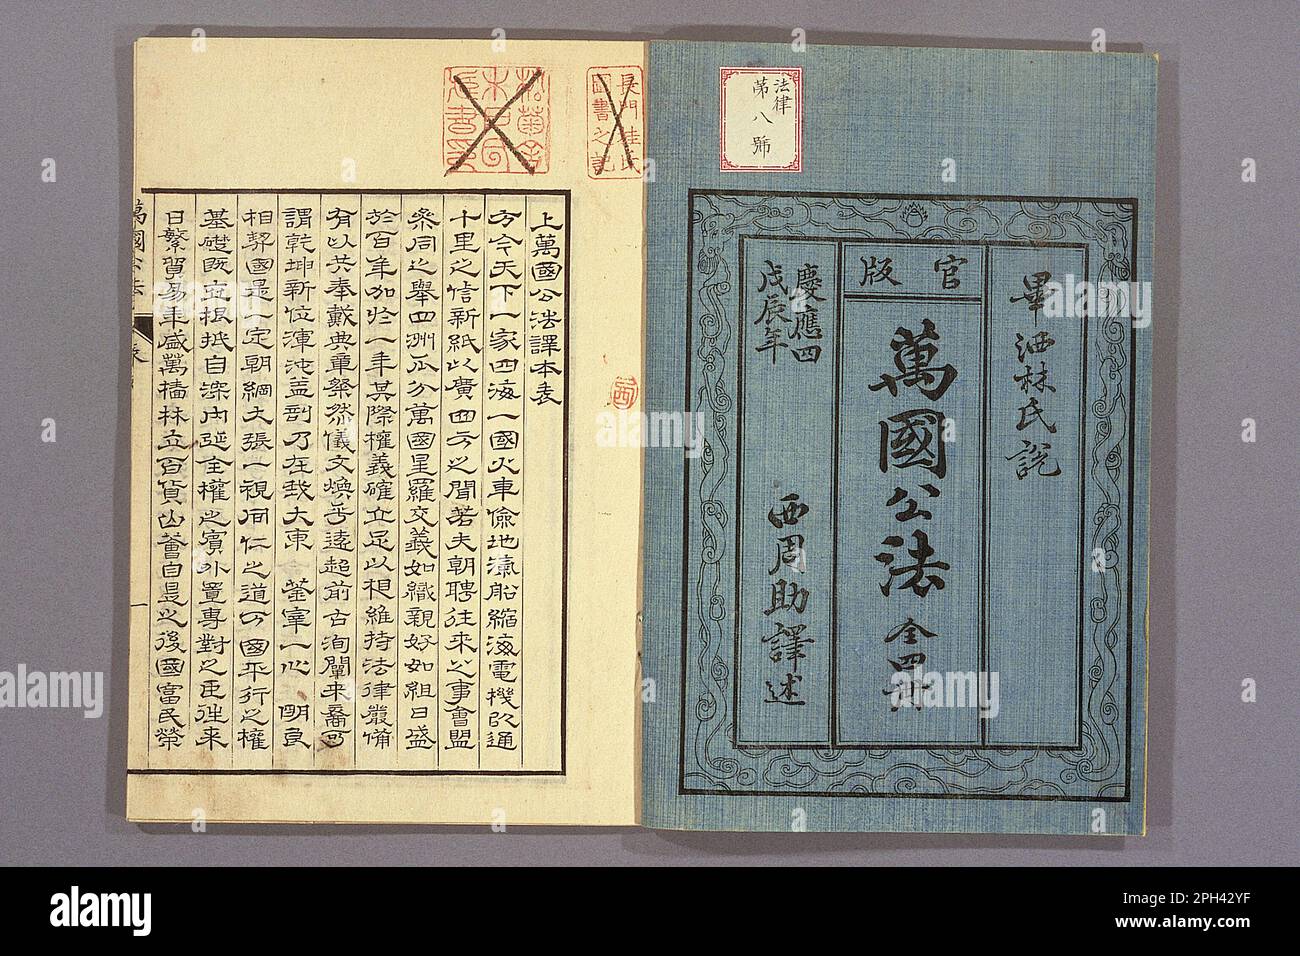 法律
第八號
官版
畢洒林氏說
萬國公法 全四冊
慶應四
戊辰年
西周助譯述
長門桂氏
圖書之記
上萬國公法譯本表
方今天下一家四海一國火車儉地漁船縮海電機以通
十里之信新紙以廣四方之聞若夫朝聘往來之事會盟
祭同之舉四洲瓜分萬國星羅交義如織親好如組日盛
於百年加於一年其際權義確立足以相維持法律嚴備
有以共奉戴典章粲然儀文煥乎遠超前古洵闡來裔可
謂乾坤新位渾沌蓋剖乃在我大東 奎宰一心 明良
相契國是一定朝綱大張一視同仁之道 國平行之權
基礎既立根抵自深內延全權之賓外置專對之臣往來
日繁貿易年盛萬檣林立百貨山薈自是之後國富民榮
萬國公法
一
alamy
a
Image ID: 2PH42YF
www.alamy.com